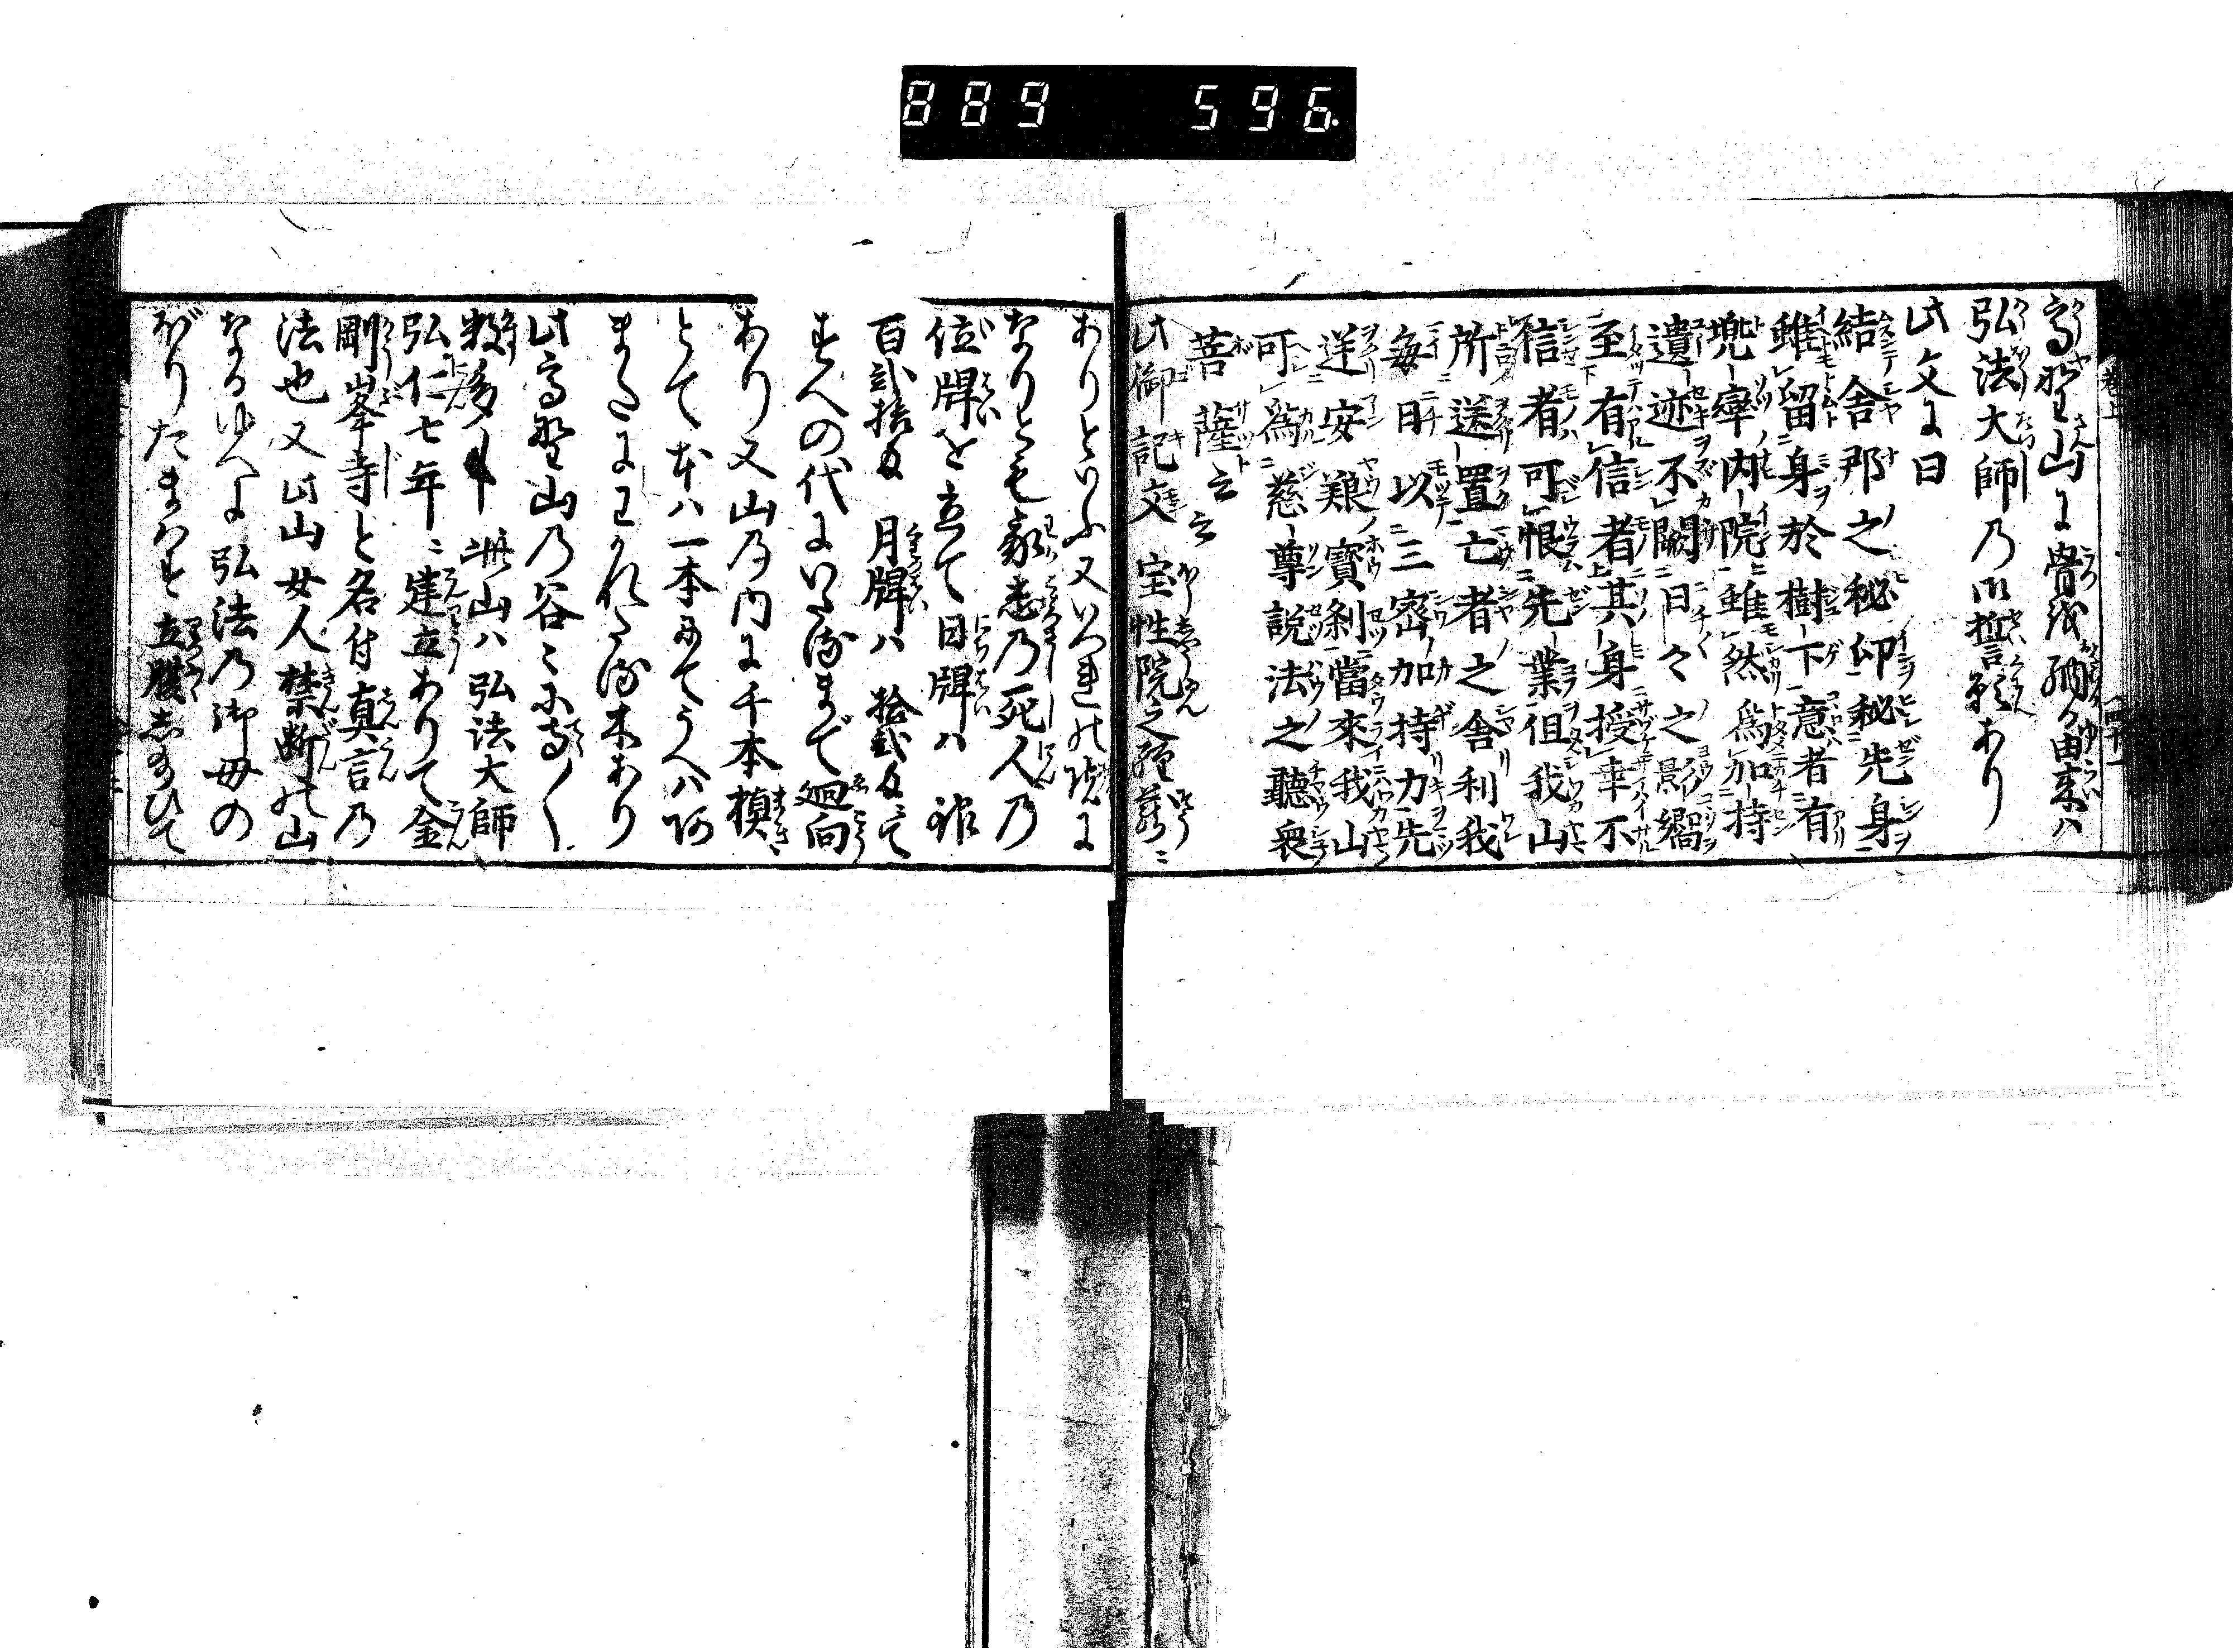 889 596.
高野山に骨を納る由来ハ
弘法大師乃御誓願あり
此文に曰
結舎那之秘印秘先身
雖留身於樹下意者有
兜率内院雖然為加持
遺迹不闕日々之影嚮
至有信者其身授幸不
信者可恨先業但我山
所送置亡者之舎利我
毎日以三密加持力先
送安養寳刹當來我山
可為慈尊説法之聽衆
菩薩云云
此御記文宝性院之
ありといふ又いつれの
なりとも乃死人乃
位牌を立て日牌ハ
百弐拾月牌ハ拾弐
すへの代にいたるまで廻向
あり又山乃内に千本槇
とて本ハ一本にてうへハ
またにわかれたる木あり
此高野山乃谷々に
数多此山ハ弘法大師
弘仁七年ニ建立ありて金
剛峯寺と名付真言乃
法也又此山女人禁断の山
なるゆへに弘法乃御母の
ぼりたまはす立腹したまひて